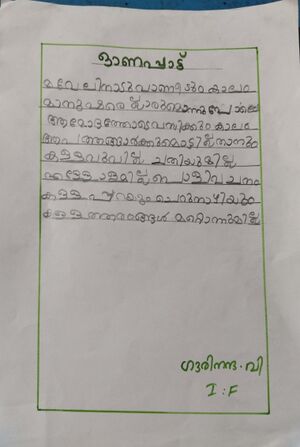 ഓണപ്പാട്ട്
മവേലിനാടുവാണീടും കാലം
മാനുഷരെല്ലാരുമൊന്നുപോലെ
ആമോദത്തോടെവസിക്കും കാലം
ആപത്തങ്ങാർക്കുമൊട്ടില്ലതാനും
കള്ളവുമില്ല ചതിയുമില്ല
എള്ളോളമില്ല പൊളിവചനം
കള്ളപ്പറയും ചെറുനാഴിയും
കള്ളത്തരങ്ങൾ മറ്റൊന്നുമില്ല
ഗൗരിനന്ദ . വി
I : F